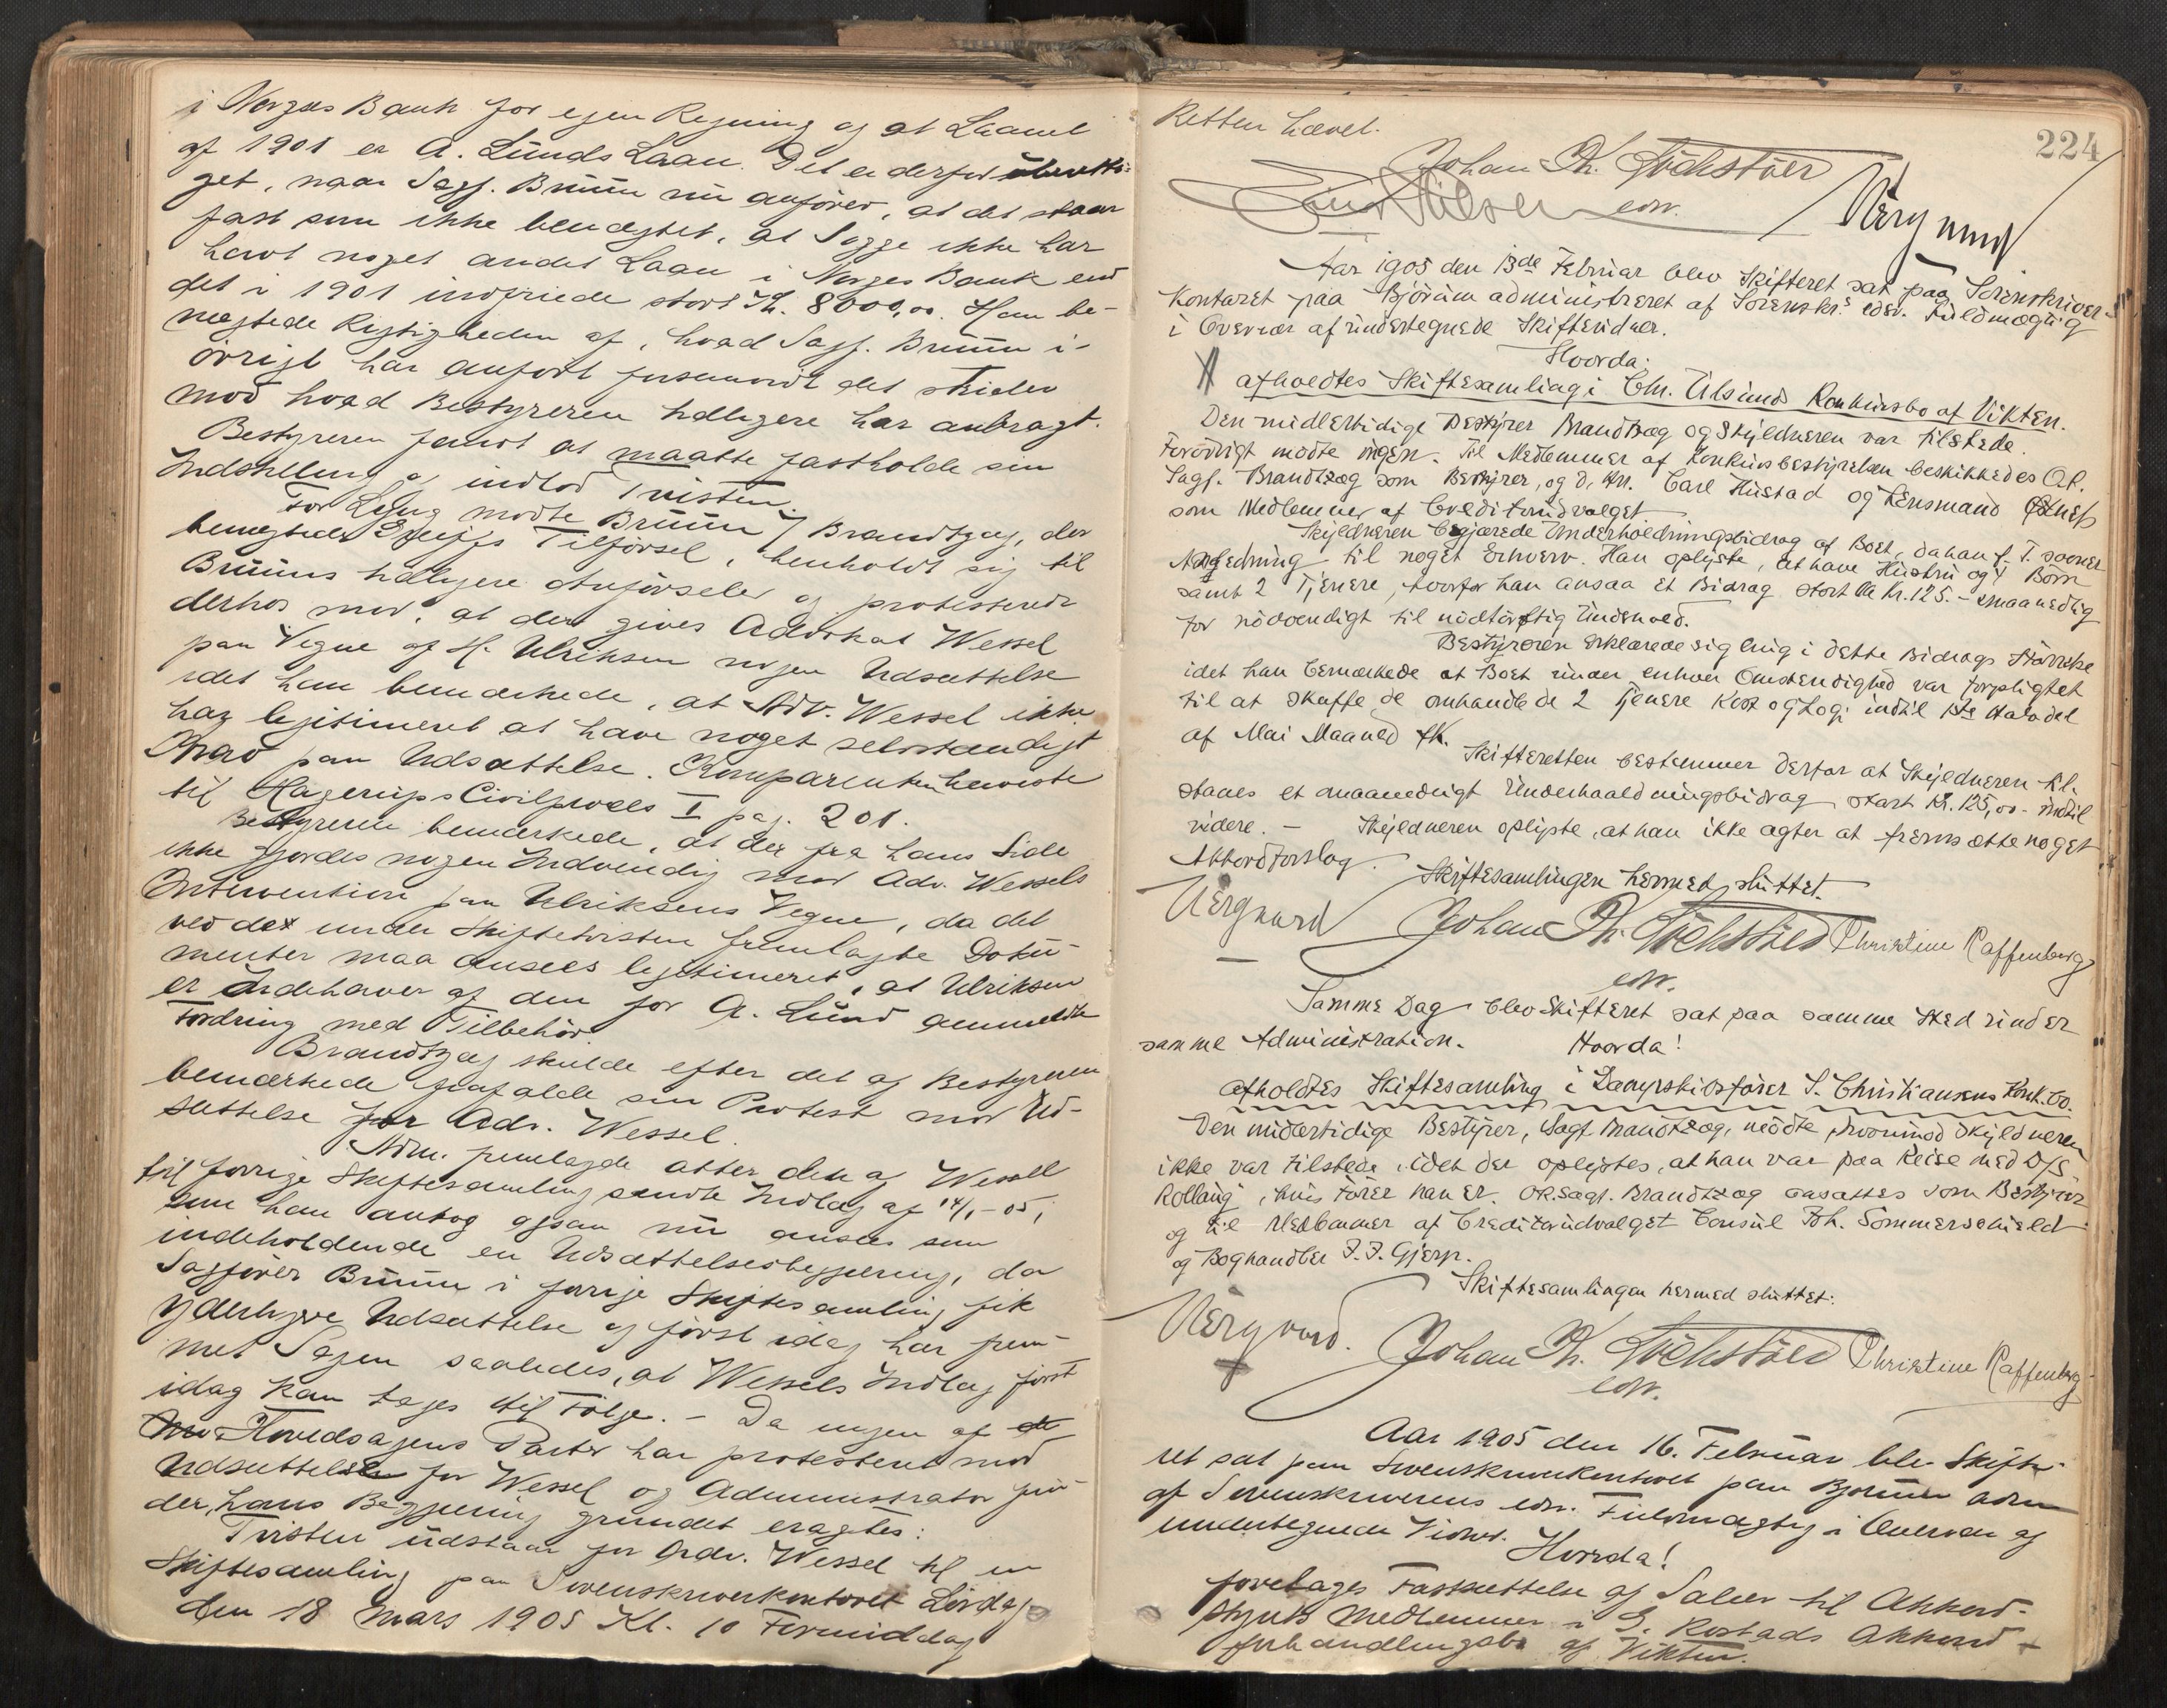 i Norges Bank for egen Regning og at Laanet
af 1901 er A. Lunds Laan. Det er derfor
get, naar Sagf. Bruun nu anfører, at det staar
fast som ikke benægtet, at Sogge ikke har
havt noget andet Laan i Norges Bank end
det i 1901 indfriede stort Kr. 8000,00. Han be-
nægtede Rigtigheden af, hvad Sagf. Bruun i-
övrigt har anfört forsaavidt det strider
mod hvad Bestyreren tidligere har anbragt.
Bestyreren fandt at maatte fastholde sin
Indstilling og indlod Tristen.
For Lyng mödte Bruun / Brandtzæg, der
benægtede Tilförsel, henholdt sig til
Bruuns tidligere Anförseler og protesterede
derhos mod, at der gives Advokat Wessel
paa Vegne af H. Ulriksen nogen Udsættelse
idet han bemærkede, at Adv. Wessel ikke
har legitimeret at have noget selvstændigt
Krav paa Udsættelse. Komparenten henviste
til Hagerups Civilproces I pag. 201.
Bestyreren bemærkede, at der fra hans Side
ikke gjordes nogen Indvending mod Adv. Wessels
Intervention paa Ulriksens Vegne, da det
ved det under Skiftetvisten fremlagte Doku-
menter maa ansees legitimeret, at Ulriksen
er Indehaver af den for A. Lund anmeldte
Fordring med Tilbehör.
Brandtzæg skulde efter det af Bestyreren
bemærkede frafalde sin Protest mod Ud-
sættelse for Adv. Wessel.
Adm. fremlagde atter den af Wessel
til forrige Skiftesamling sendte Indlæg af 14/1-05,
som han antog ogsaa nu ansees som
indeholdende en Udsættelsesbegjæring, da
Sagförer Bruun i forrige Skiftesamling fik
yderligere Udsættelse og först idag har frem-
met Sagen saaledes, at Wessels Indlæg först
idag kan tages til Fölge. - Da ingen af
Hovedsagens Parter har protesteret mod
Udsættelse for Wessel og Administrator fin-
der hans Begjæring grundet eragtes:
Tvisten udstaar for Adv. Wessel til en
Skiftesamling paa Sorenskriverkontoret Lördag
den 18 Mars 1905 Kl. 10 Formiddag
224
Retten hævet.
Johan Ph. Lochstöer
edv.
Aar 1905 den 13de Februar blev Skifteret sat paa Sorenskriver-
kontoret paa Björuum administreret af Sorenskr.s edsv. Fuldmægtig
i Overvær af undertegnede Skiftevidner.
Hvorda:
afholdtes Skiftesamling i Chr. Ulsunds Konkursbo af Vikten.
Den midlertidige Bestyrer Brandtzæg og Skyldneren var tilstede.
Forövrigt mödte ingen. Til Medlemmer af Konkursbestyrelsen beskikkedes O.R.
Sagf. Brandtzæg som Bestyrer, og D'Hrr. Carl Hustad og Lensmand
som Medlemmer af Creditorudvalget
Skyldneren begjærede Underholdningsbidrag af Boet, da han f. T. savner
Anledning til noget Erhverv. Han oplyste, at have Hustru og 4 Börn
samt 2 Tjenere, hvorfor han ansaa et Bidrag stort Kr. 125.- maanedlig
for nödvendigt til nödtörftig Underhold.
Bestyreren erklærede sig enig i dette Bidrags Störrelse
idet han bemærkede at Boet under enhver Omstendighed var forpligtet
til at skaffe de omhandlede 2 Tjenere Kost og Logi indtil 1ste Halvdel
af Mai Maaned fK.
Skifteretten bestemmer derfor at Skyldneren til-
staaes et maanedligt Underhaaldningsbidrag stort Kr. 125,00- indtil
videre. - Skyldneren oplyste, at han ikke agter at fremsætte noget
Akkordforslag.
Skiftesamlingen hermed sluttet.
Johan Ph. Lochstöer Christine Raffenberg
edv.
Samme Dag blev Skifteret sat paa samme Sted under
samme Administration. Hvorda!
afholdtes Skiftesamling i Dampskibsförer S. Christiansens Konk.bo.
Den midlertidige Bestyrer, Sagf. Brandtzæg, mödte, hvorimod Skyldneren
ikke var tilstede, idet der oplystes, at han var paa Reise med D/S
Rollaug, hvis Förer han er. O.R.Sagf. Brandtzæg ansattes som Bestyrer
og til Medlemmer af Creditorudvalget Consul Joh. Sommerschield
og Boghandler J. J. Gjerp.
Skiftesamlingen hermed sluttet.
Johan Ph. Lochstöer Christine Raffenberg
edv.
Aar 1905 den 16. Februar blev Skifte-
ret sat paa Sorenskriverkontoret paa Björuum adm
af Sorenskriverens edv. Fuldmægtig i Overvær af
undertegnede Vidner. Hvorda!
foretages Fastsættelse af Salær til Akkord-
styrets Medlemmer i G. Rostads Akkord-
forhandlingsbo af Vikten.